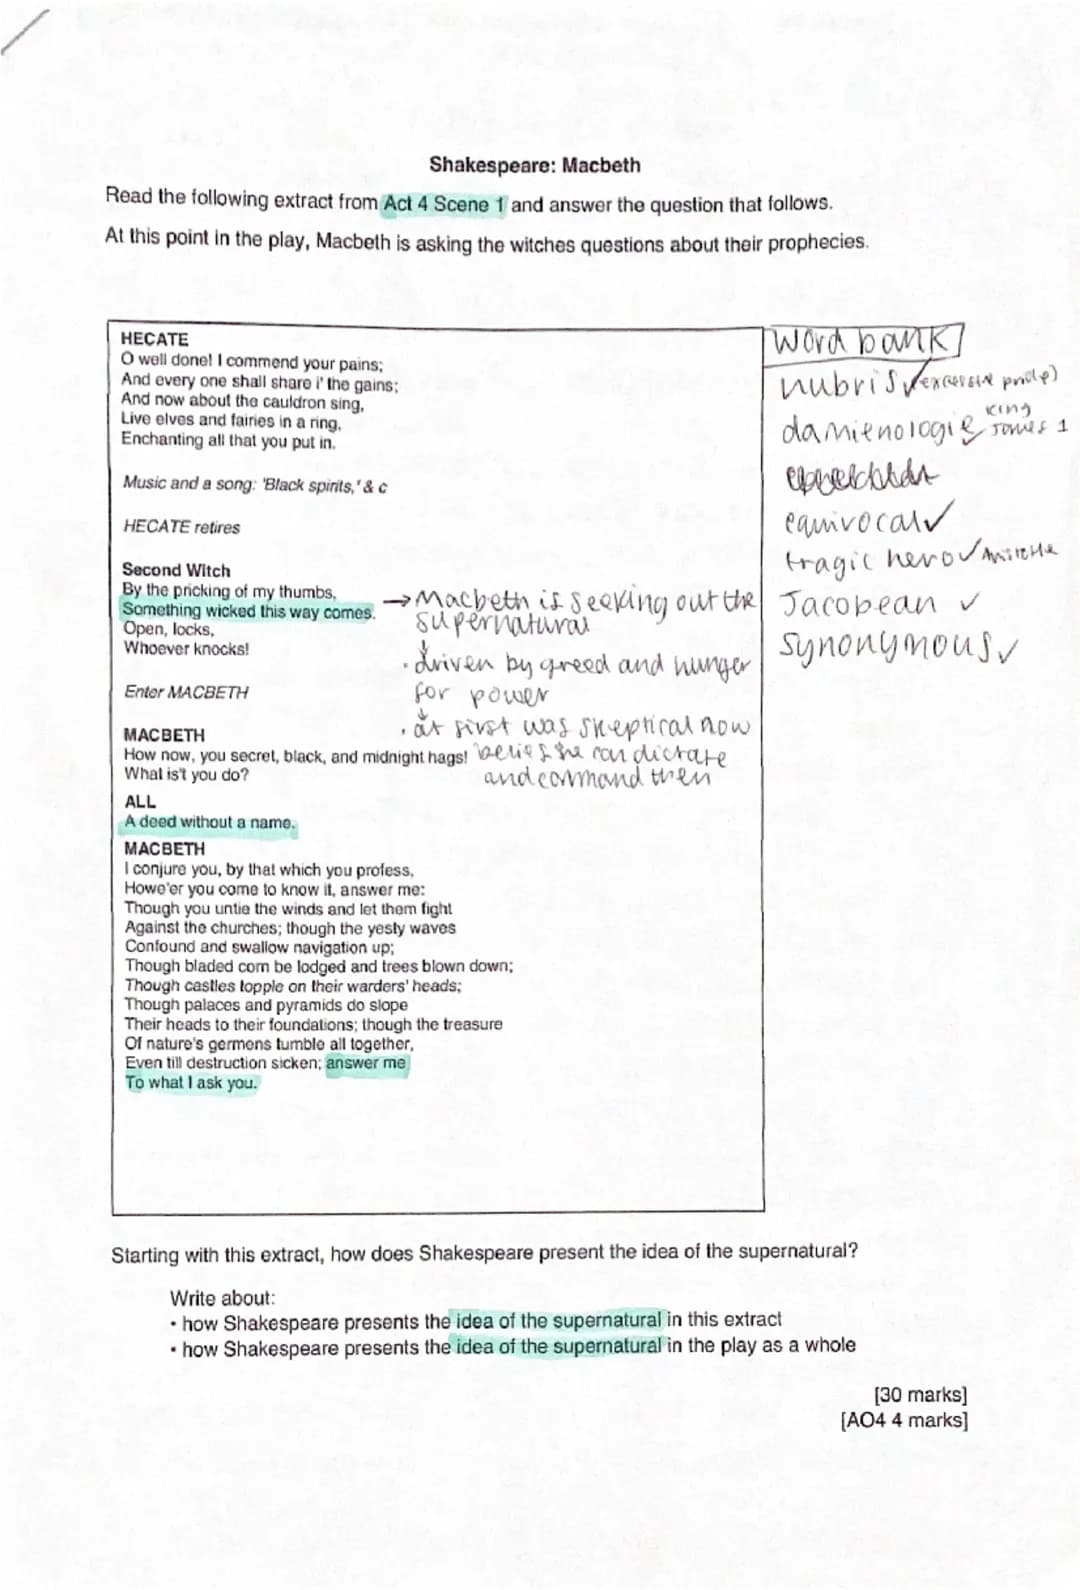 Shakespeare: Macbeth
Read the following extract from Act 4 Scene 1 and answer the question that follows.
At this point in the play, Macbeth is asking the witches questions about their prophecies.
HECATE
O well done! I commend your pains;
And every one shall share i' the gains;
And now about the cauldron sing,
Live elves and fairies in a ring,
Enchanting all that you put in.
Music and a song: 'Black spirits,' & c
HECATE retires
Second Witch
By the pricking of my thumbs,
Something wicked this way comes.
Open, locks,
Whoever knocks!
Enter MACBETH
MACBETH
How now, you secret, black, and midnight hags!
What is't you do?
ALL
A deed without a name.
MACBETH
I conjure you, by that which you profess,
Howe'er you come to know it, answer me:
Though you untie the winds and let them fight
Against the churches; though the yesty waves
Confound and swallow navigation up;
Though bladed corn be lodged and trees blown down;
Though castles topple on their warders' heads;
Though palaces and pyramids do slope
Their heads to their foundations; though the treasure
Of nature's germens tumble all together,
Even till destruction sicken; answer me
To what I ask you.
→ Macbeth is seeking out the
supernatural
↓
• driven by greed and hunger
for power
↓
• at first was skeptical now
belies he can dictate
and command them
word bank
hubris ✓ (excessive pride)
damienologie king
James 1
equivocal ✓
tragic hero ✓
Jacobean ✓
synonymous ✓
Starting with this extract, how does Shakespeare present the idea of the supernatural?
Write about:
• how Shakespeare presents the idea of the supernatural in this extract
• how Shakespeare presents the idea of the supernatural in the play as a whole
[30 marks]
[AO4 4 marks]